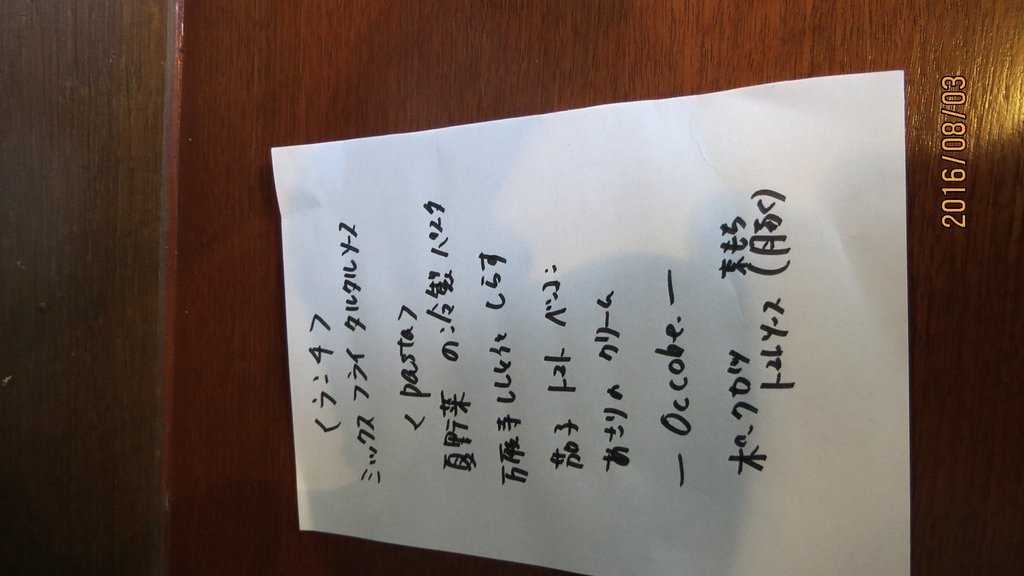 <ランチ>
ミックスフライ タルタルソース
<pasta>
夏野菜 の冷製パスタ
万願寺ししとうと しらす
茄子 トマト ベーコン
あさりの クリーム
— Occobe. —
ポークロイン
トマトソース (月水く)
2016/08/03